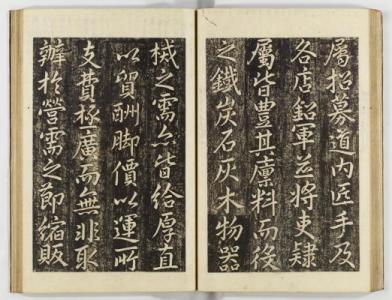 屬招募道内匠手及
各店鋁軍並將吏隸
屬皆豊其稟料而後
之鐵炭石灰木物器
械之需亦皆給厚直
以貿酬脚價以運所
支費極廣而無非取
辦於營需之節縮販